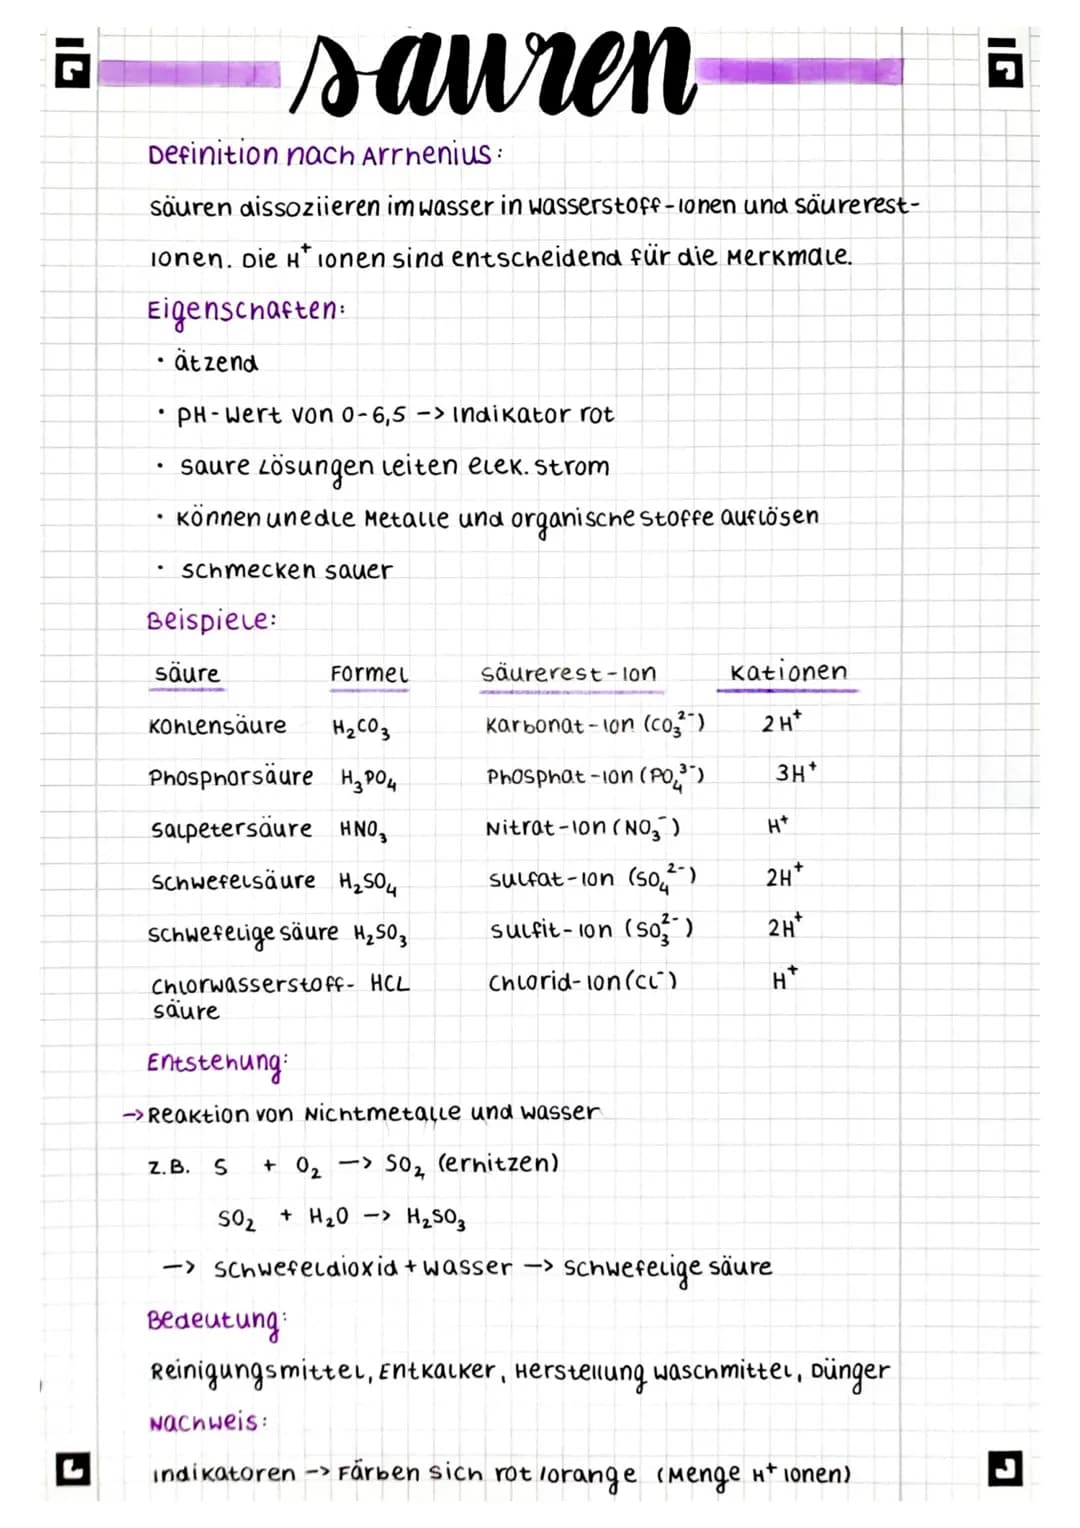 säuren
Definition nach Arrhenius:
säuren dissoziieren im wasser in wasserstoff-Ionen und säurerest-
Ionen. Die H⁺ Ionen sind entscheidend für die Merkmale.
Eigenschaften:
· ätzend
· pH-Wert von 0-6,5 -> Indikator rot
· saure Lösungen leiten elek. Strom
· können unedle Metalle und organische Stoffe auflösen
· schmecken sauer
Beispiele:
säure Formel säurerest-Ion Kationen
Kohlensäure H₂CO₃ Karbonat-Ion (CO₃²⁻) 2H⁺
Phosphorsäure H₃PO₄ Phosphat-Ion (PO₄³⁻) 3H⁺
Salpetersäure HNO₃ Nitrat-Ion (NO₃⁻) H⁺
Schwefelsäure H₂SO₄ Sulfat-Ion (SO₄²⁻) 2H⁺
schwefelige säure H₂SO₃ Sulfit-Ion (SO₃²⁻) 2H⁺
Chlorwasserstoff- HCL Chlorid-Ion (Cl⁻) H⁺
säure
Entstehung:
-> Reaktion von Nichtmetalle und wasser
z.B. S + O₂ -> SO₂ (erhitzen)
SO₂ + H₂O -> H₂SO₃
-> Schwefeldioxid + wasser -> schwefelige säure
Bedeutung:
Reinigungsmittel, Entkalker, Herstellung waschmittel, Dünger
Nachweis:
Indikatoren -> Färben sich rot/orange (Menge H⁺ Ionen)